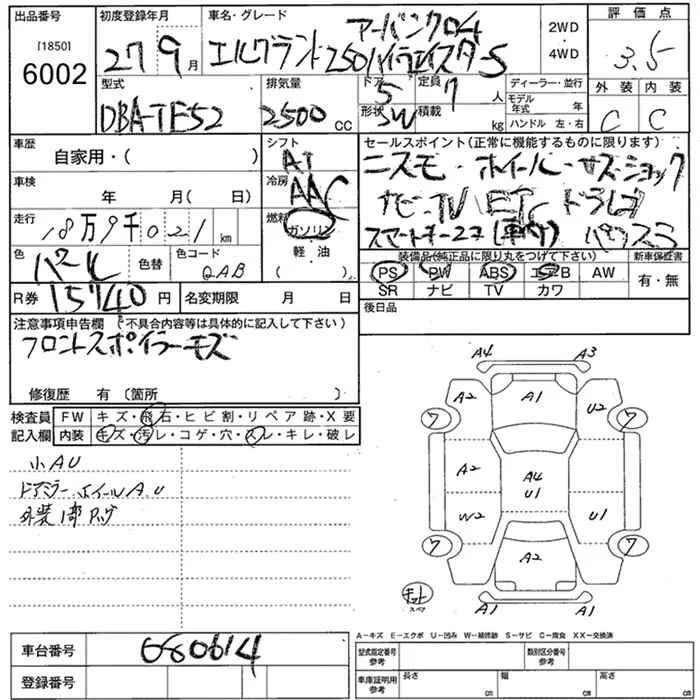 出品番号 初度登録年月 車名・グレード 評価点
アーバンクロム
[1850] 2WD
6002 27 9月 エルグランド250ハイウェイスターS ・4WD 3.5
型式 排気量 ドア 5 定員 7人 ディーラー・並行 外装 内装
DBA-TE52 2500cc 形状 SW 積載 kg モデル年式 年 C C
ハンドル 左・右
車歴 シフト セールスポイント(正常に機能するものに限ります)
自家用・( ) AT ニスモ・ホイール・サス・ショック
車検 冷房 AAC ナビ・TV ETC ドラレコ
年 月( 日)
走行 18万9千021km 燃料 ガソリン スマートキー2ケ(車内) パワスミ
色 パール 色替 色コード QAB 軽油 ( ) 装備品(純正品に限り丸をつけて下さい) 新車保証書
PS PW ABS エアB AW 有・無
R券 15740円 名変期限 月 日 SR ナビ TV カワ
注意事項申告欄 (不具合内容等は具体的に記入して下さい) 後日品
フロントスポイラーキズ
修復歴 有 (箇所 )
検査員 FW キズ・飛石・ヒビ割・リペア跡・X要
記入欄 内装 キズ・汚レ・コゲ・穴・スレ・キレ・破レ
小AU
ドアミラー ホイールAU
外装1部
A4 A3
A2 A1 U2
7 7
A2 A4 U1
W2 U1
7 7
A2
キット
スペア
A1 A1
A-キズ E-エクボ U-凹み W-補修跡 S-サビ C-腐食 XX-交換済
車台番号 660614
型式指定番号 参考 類別区分番号 参考
登録番号
車庫証明用 参考 長さ cm 幅 cm 高さ cm